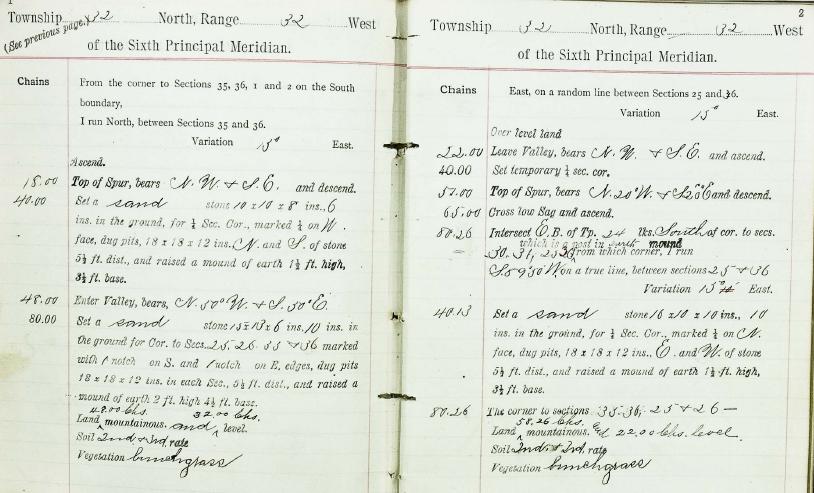 1
Township 32 North, Range 32 West
(See previous page.)
of the Sixth Principal Meridian.
Chains
From the corner to Sections 35, 36, 1 and 2 on the South
boundary,
I run North, between Sections 35 and 36.
Variation 15° East.
Ascend.
18.00 Top of Spur, bears N. W. & S. E. and descend.
40.00 Set a sand stone 10 x 10 x 8 ins., 6
ins. in the ground, for ¼ Sec. Cor., marked ¼ on W.
face, dug pits, 18 x 18 x 12 ins., N. and S. of stone
5½ ft. dist., and raised a mound of earth 1½ ft. high,
3½ ft. base.
48.00 Enter Valley, bears, N. 50° W. & S. 50° E.
80.00 Set a sand stone 15 x 13 x 6 ins. 10 ins. in
the ground for Cor. to Secs. 25, 26, 35 & 36 marked
with 1 notch on S. and 1 notch on E, edges, dug pits
18 x 18 x 12 ins. in each Sec., 5½ ft. dist., and raised a
mound of earth 2 ft. high 4½ ft. base.
48.00 Chs. 32.00 Chs.
Land mountainous. and level.
Soil 2nd & 3rd rate
Vegetation bunchgrass
2
Township 32 North, Range 32 West
of the Sixth Principal Meridian.
Chains
East, on a random line between Sections 25 and 36.
Variation 15° East.
Over level land
22.00 Leave Valley, bears N. W. & S. E. and ascend.
40.00 Set temporary ¼ sec. cor.
57.00 Top of Spur, bears N. 20° W. & S 20° E and descend.
65.00 Cross low Sag and ascend.
80.26 Intersect E. B. of Tp. 24 lks. South of cor. to secs.
which is a post in earth mound
30, 31, 25 36 from which corner, I run
S. 89° 50' W. on a true line, between sections 25 & 36
Variation 15° East.
40.13 Set a sand stone 16 x 10 x 10 ins., 10
ins. in the ground, for ¼ Sec. Cor., marked ¼ on N.
face, dug pits, 18 x 18 x 12 ins., E. and W. of stone
5½ ft. dist., and raised a mound of earth 1½ ft. high,
3½ ft. base.
80.26 The corner to sections 35, 36, 25 & 26 —
58.26 Chs.
Land mountainous. & 22.00 Chs. level.
Soil 2nd. & 3rd. rate
Vegetation bunchgrass